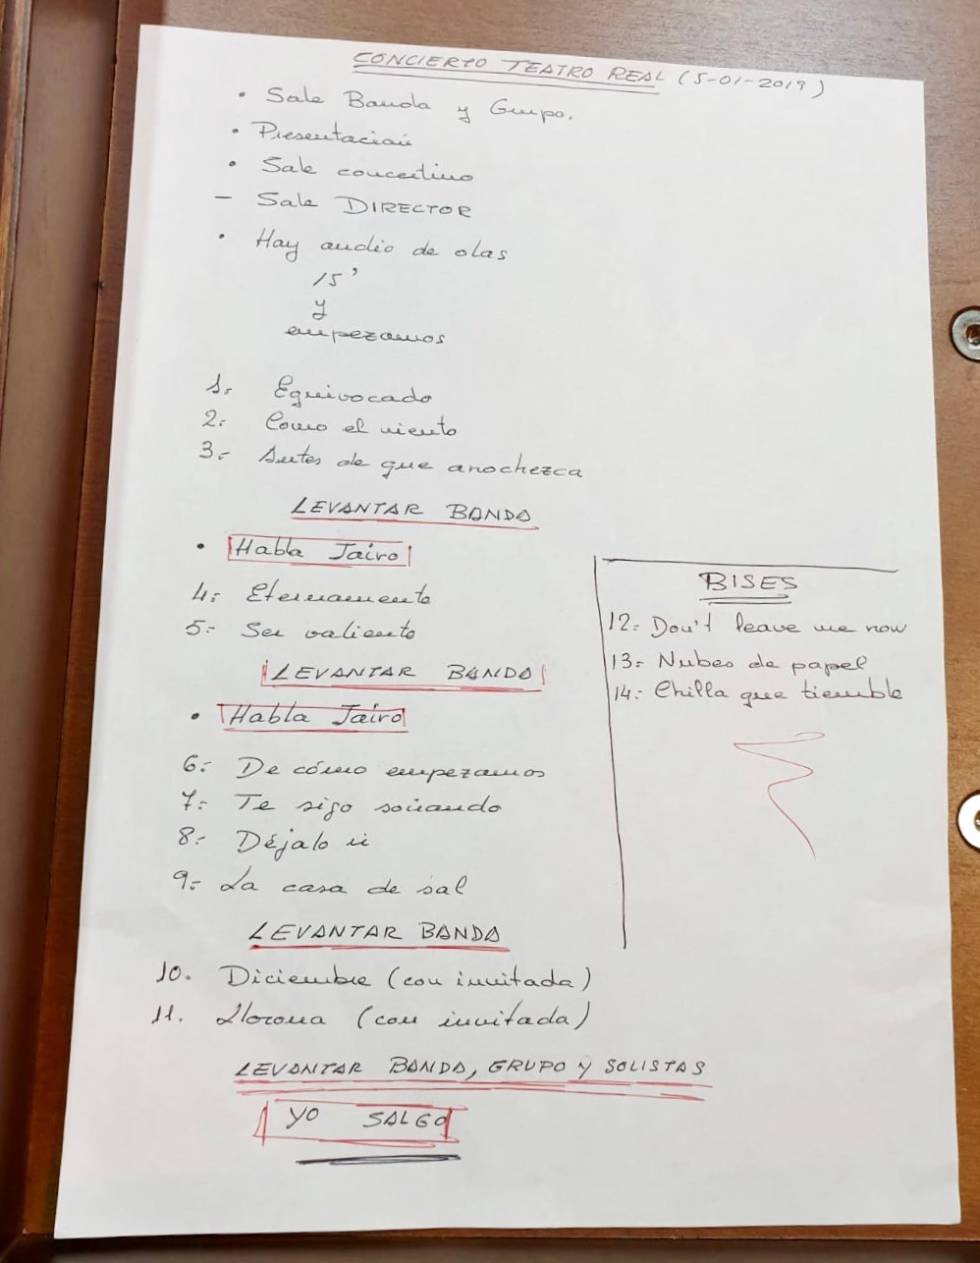 CONCIERTO TEATRO REAL (5-01-2019)
· Sale Banda y Grupo.
· Presentación
· Sale concertino
- Sale DIRECTOR
· Hay audio de olas
15'
y
empezamos
1.- Equivocado
2.- Como el viento
3.- Antes de que anochezca
LEVANTAR BANDA
· Habla Jairo
4.- Eternamente
5.- Ser valiente
LEVANTAR BANDA
· Habla Jairo
6.- De cómo empezamos
7.- Te sigo soñando
8.- Déjalo ir
9.- La casa de sal
LEVANTAR BANDA
10. Diciembre (con invitada)
11. Llorona (con invitada)
LEVANTAR BANDA, GRUPO Y SOLISTAS
YO SALGO
BISES
12.- Don't leave me now
13.- Nubes de papel
14.- Chilla que tiemble